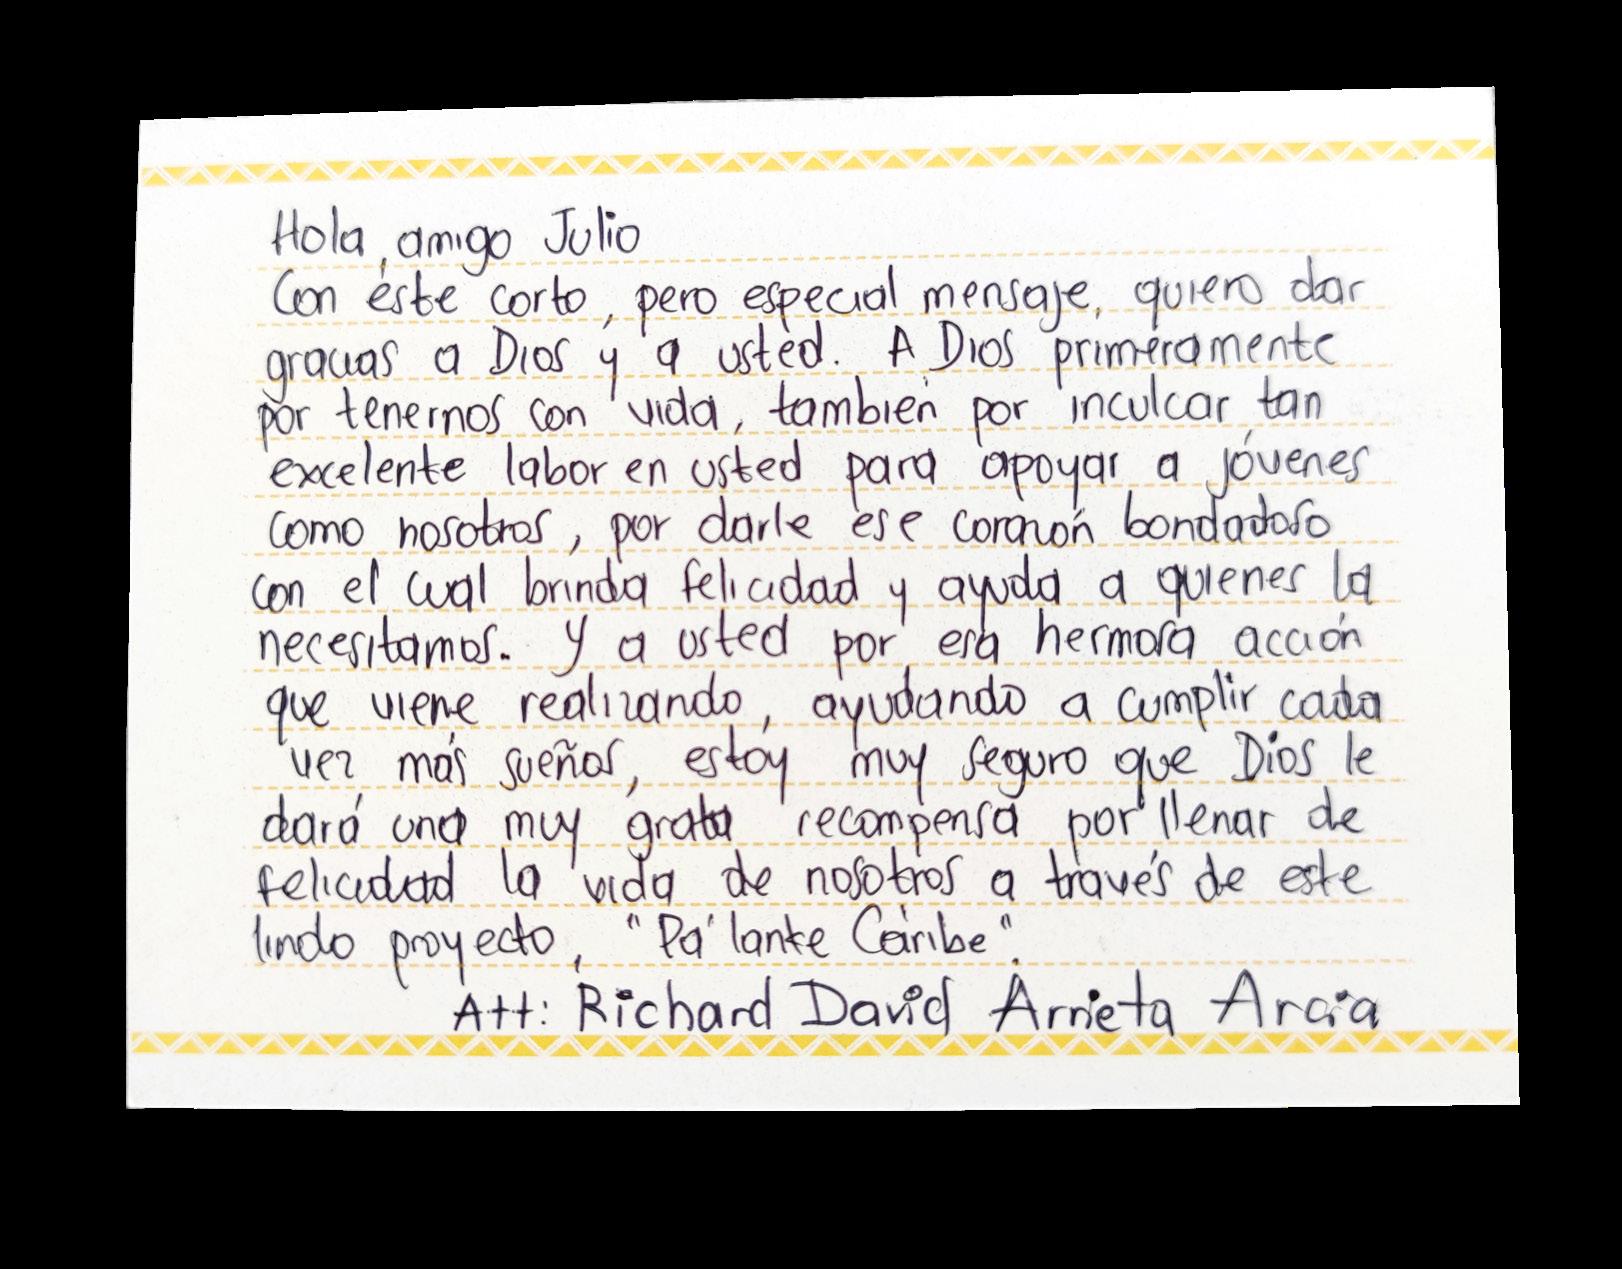 Hola, amigo Julio
Con éste corto, pero especial mensaje, quiero dar
gracias a Dios y a usted. A Dios primeramente
por tenernos con vida, también por inculcar tan
excelente labor en usted para apoyar a jóvenes
como nosotros, por darle ese corazón bondadoso
con el cual brinda felicidad y ayuda a quienes la
necesitamos. Y a usted por esa hermosa acción
que viene realizando, ayudando a cumplir cada
vez más sueños, estoy muy seguro que Dios le
dará una muy grata recompensa por llenar de
felicidad la vida de nosotros a través de este
lindo proyecto, "Pa'lante Caribe".
Att: Richard David Arrieta Arcia